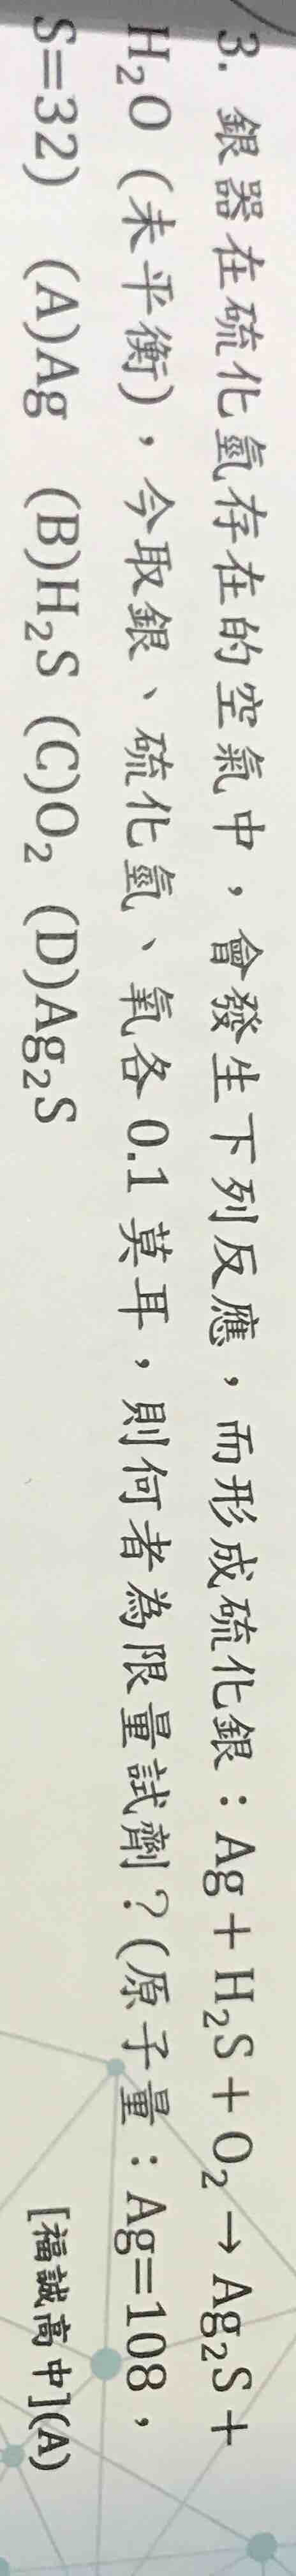 3. 銀器在硫化氫存在的空氣中，會發生下列反應，而形成硫化銀：Ag＋H₂S＋O₂→Ag₂S＋
H₂O（未平衡），今取銀、硫化氫、氧各0.1莫耳，則何者為限量試劑？(原子量：Ag=108，
S=32) (A)Ag (B)H₂S (C)O₂ (D)Ag₂S [福誠高中](A)